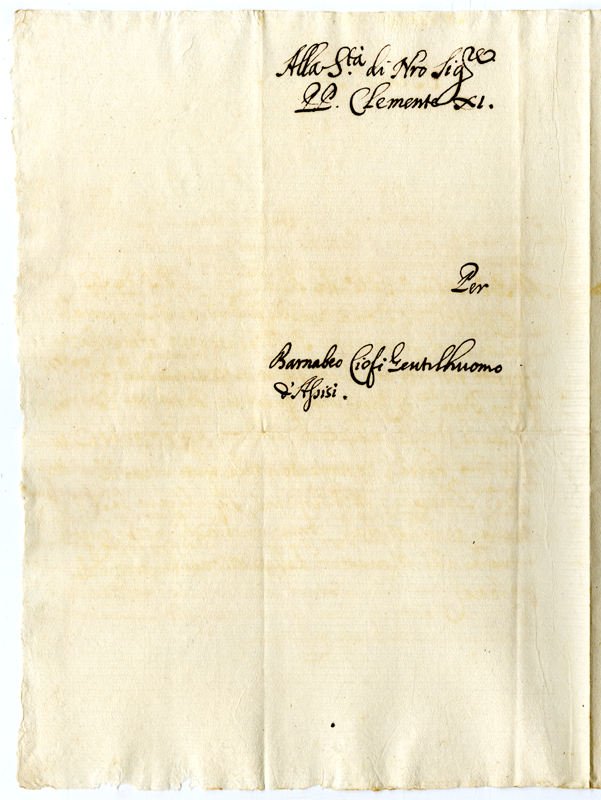 Alla S.tà di Nro Sigre
PP. Clemente XI.
Per
Barnabeo Ciofi Gentilhuomo
d'Assisi.